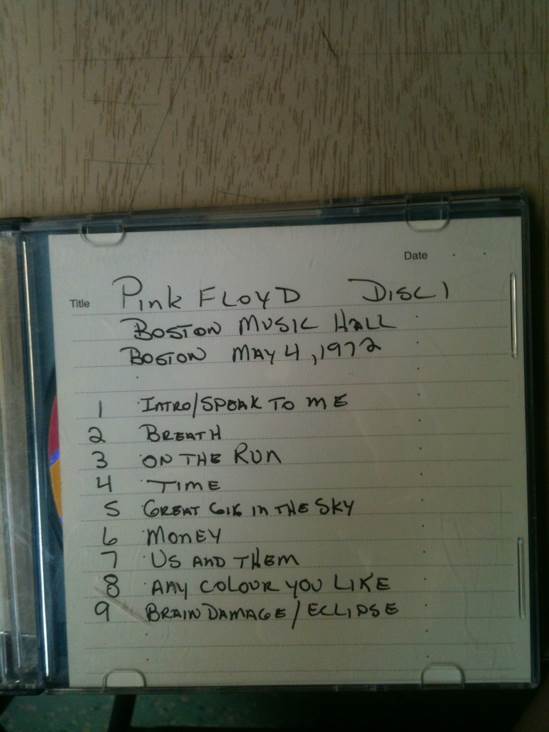 Date
Title Pink Floyd Disc 1
Boston Music Hall
Boston May 4, 1972
1 Intro/Speak to me
2 Breath
3 On the Run
4 Time
5 Great Gig in the Sky
6 Money
7 Us and Them
8 Any Colour You Like
9 Brain Damage/Eclipse